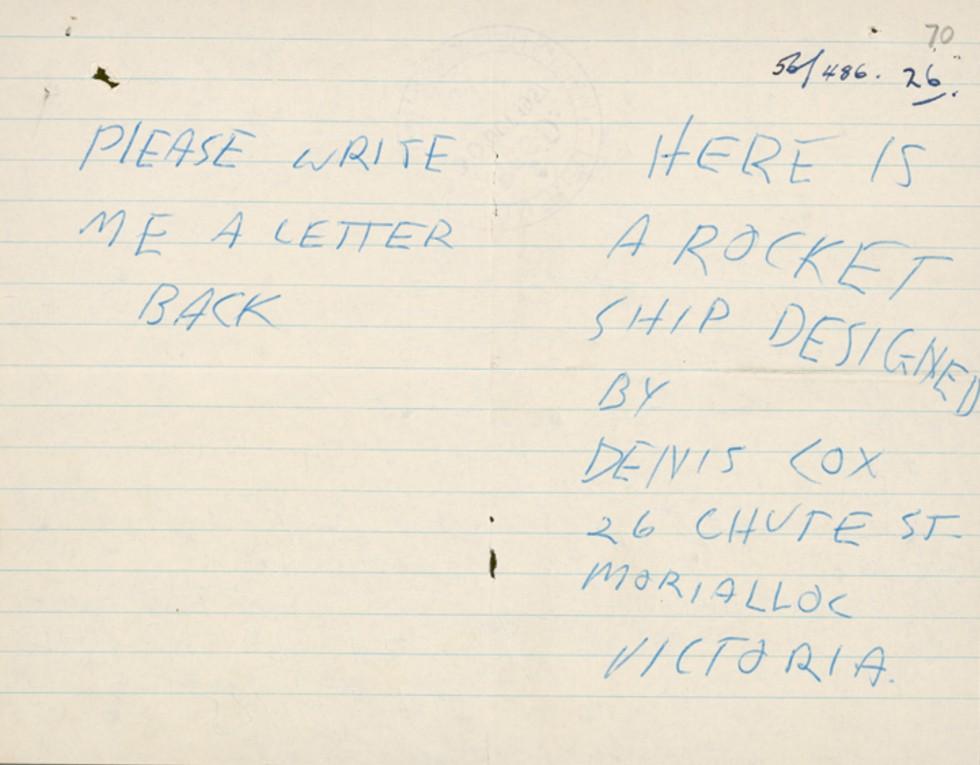 70
56/486. 26.
PLEASE WRITE
ME A LETTER
BACK
HERE IS
A ROCKET
SHIP DESIGNED
BY
DENIS COX
26 CHUTE ST.
MORIALLOC
VICTORIA.